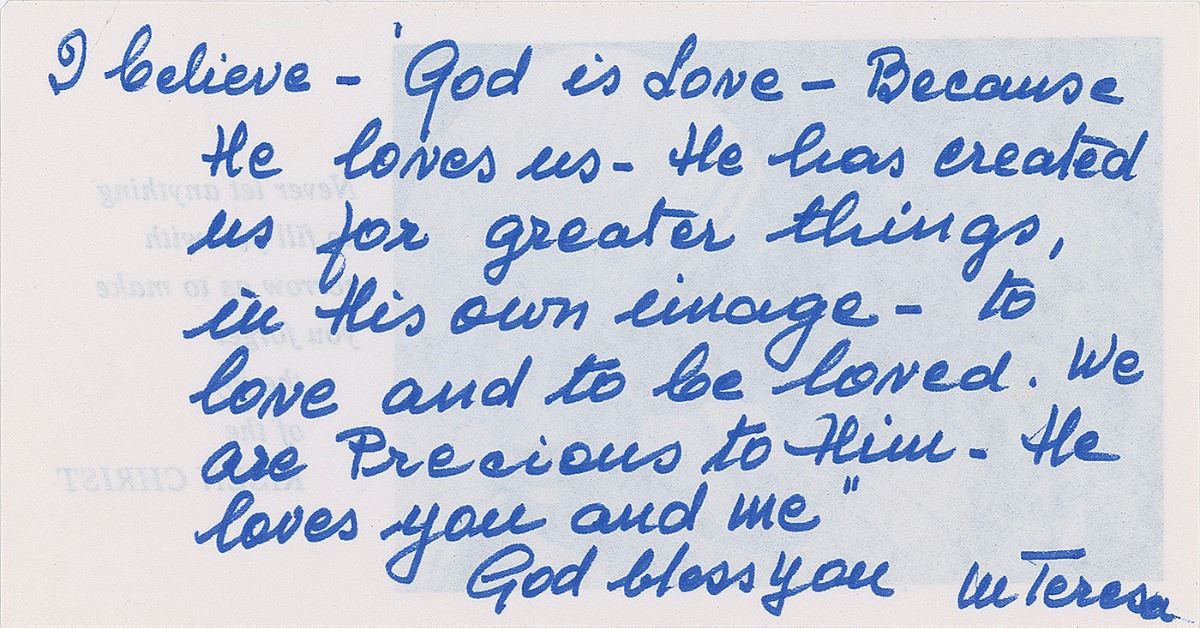 I believe - 'God is Love - Because
He loves us - He has created
us for greater things,
in His own image - to
love and to be loved. We
are Precious to Him - He
loves you and me"
God bless you M Teresa
Never let anything
fill you with
sorrow as to make
you forget
the
of the
RISEN CHRIST